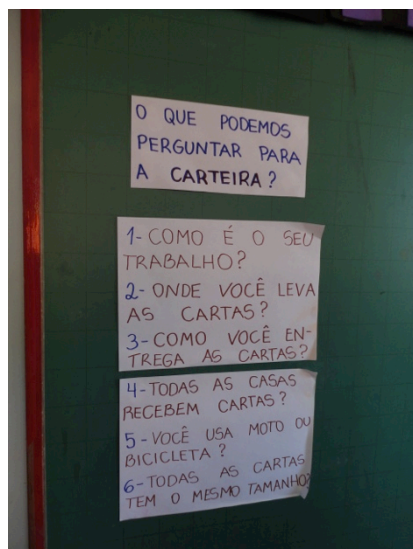 O QUE PODEMOS
PERGUNTAR PARA
A CARTEIRA?
1- COMO É O SEU
TRABALHO?
2- ONDE VOCÊ LEVA
AS CARTAS?
3- COMO VOCÊ EN-
TREGA AS CARTAS?
4- TODAS AS CASAS
RECEBEM CARTAS?
5- VOCÊ USA MOTO OU
BICICLETA?
6- TODAS AS CARTAS
TEM O MESMO TAMANHO?